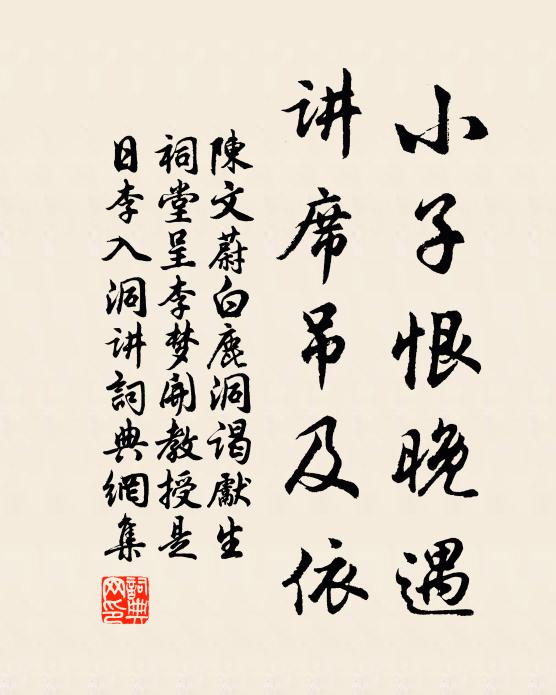 小子恨晚遇
讲席吊及依
陳文蔚白鹿洞谒獻生
祠堂呈李梦開教授是
日李入洞讲詞典網集
詞典网印